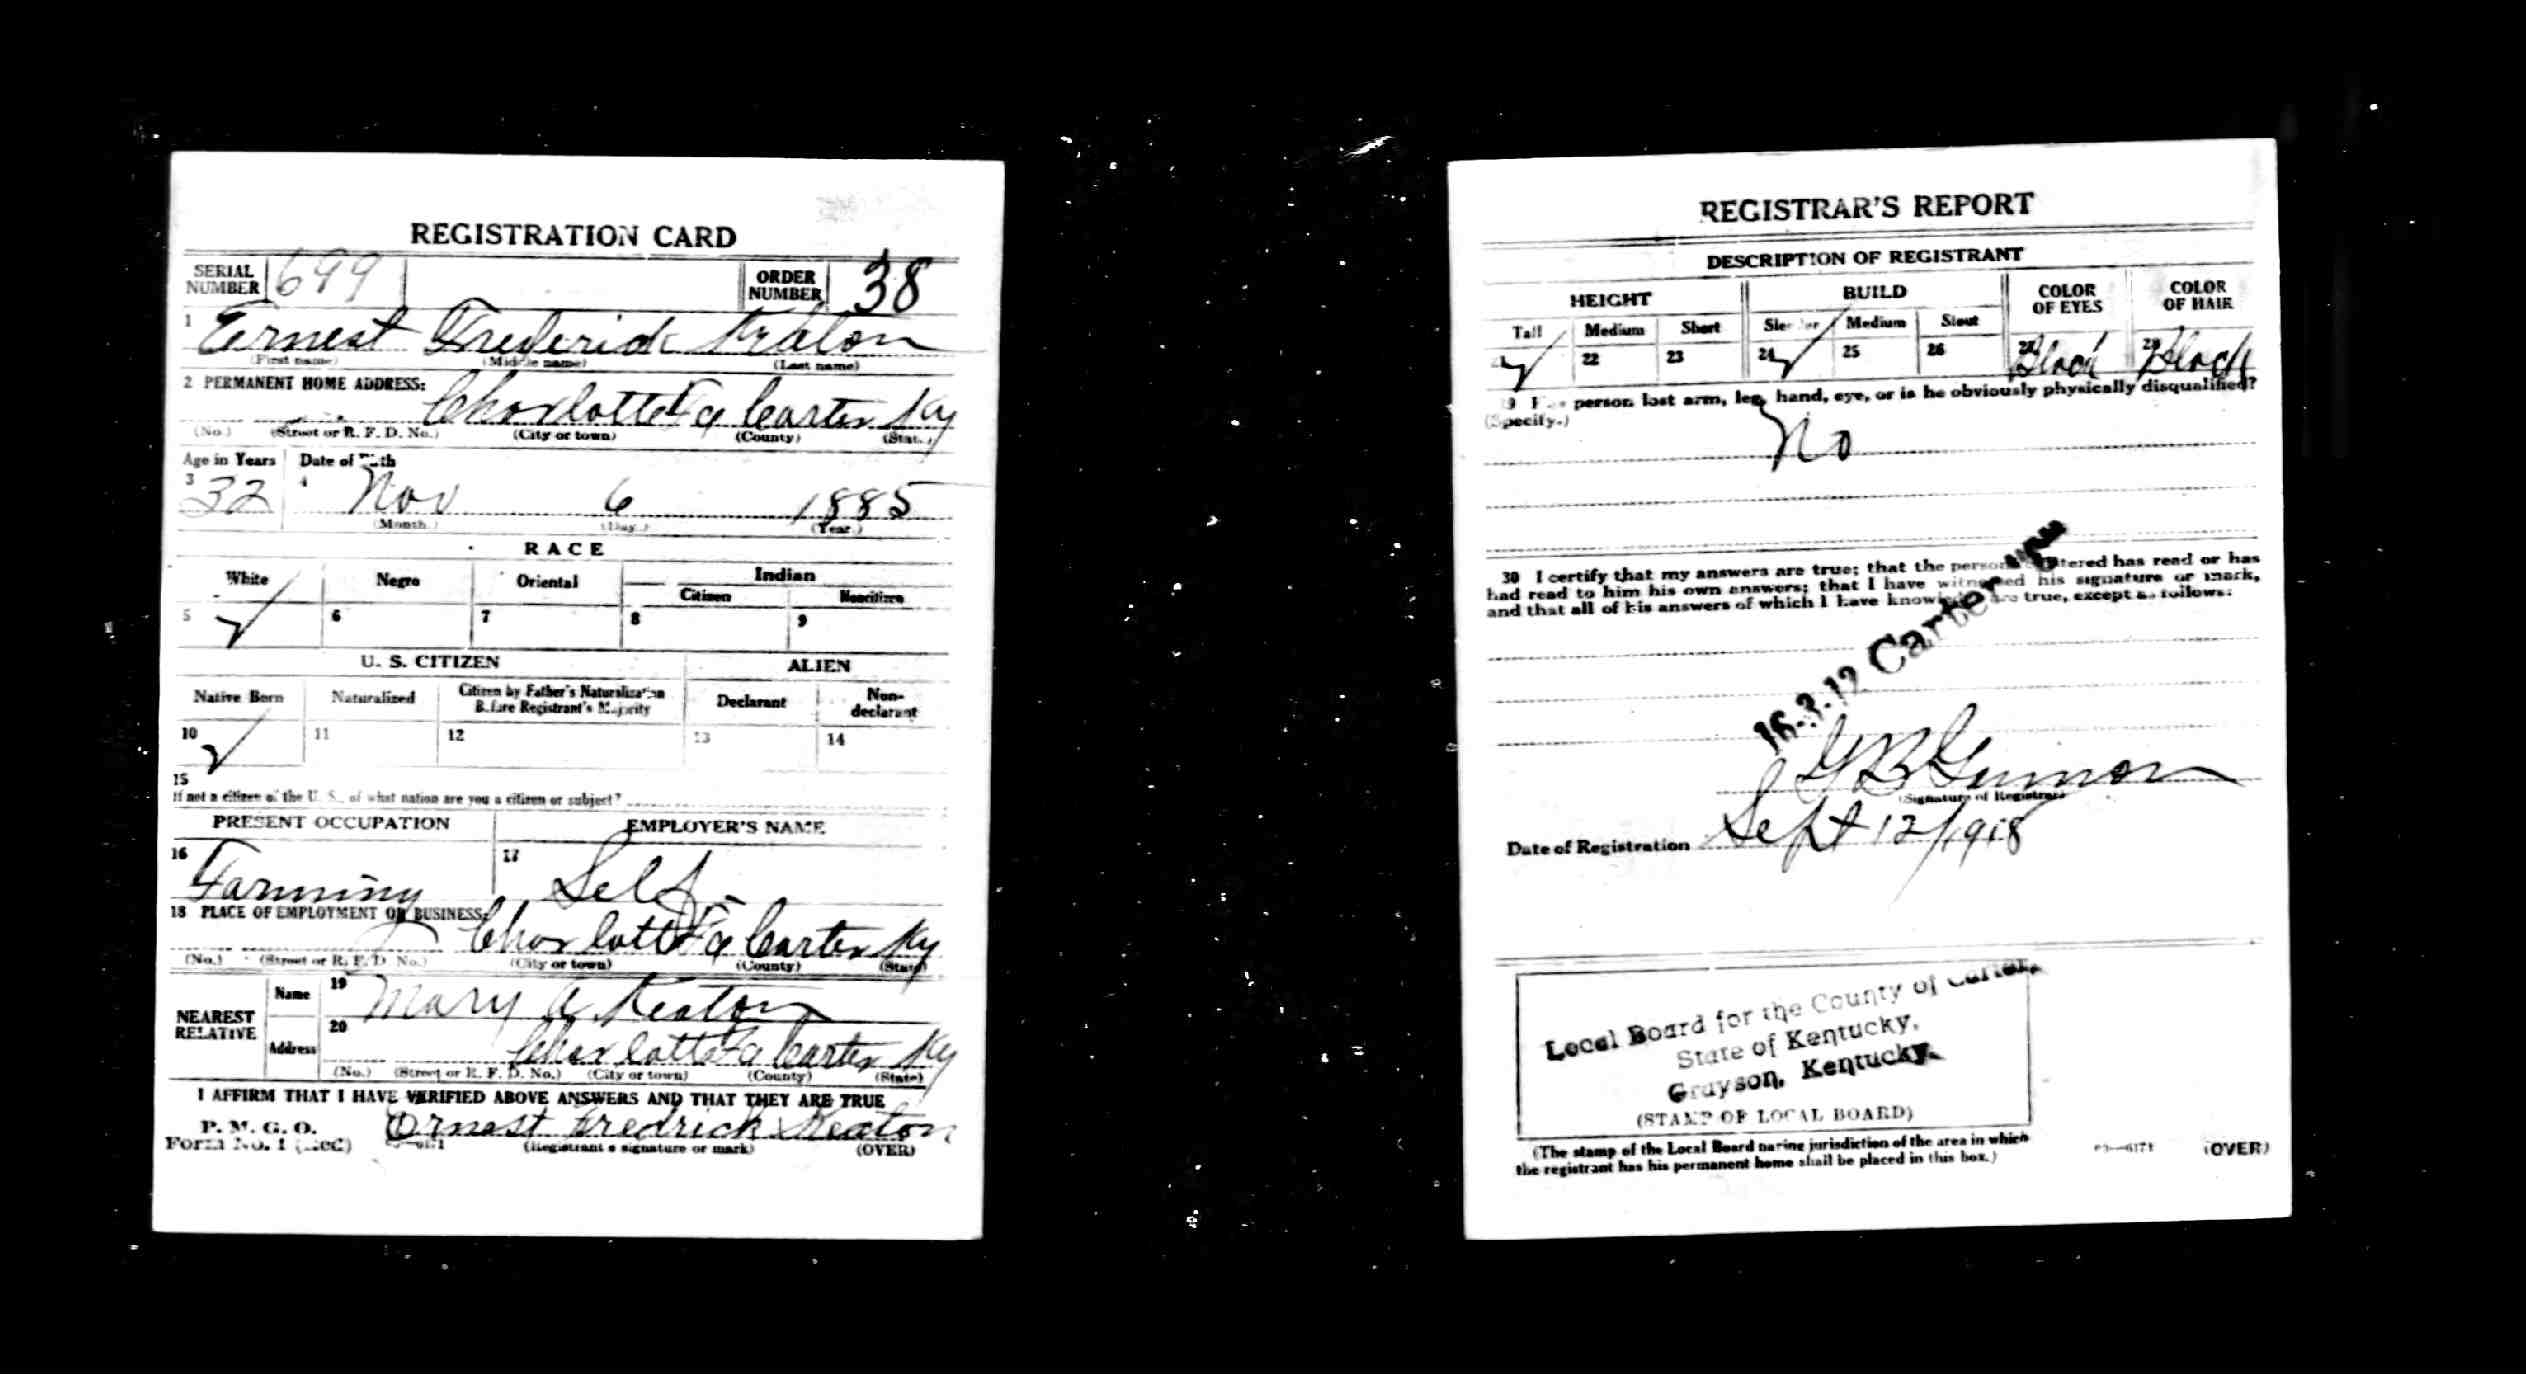 REGISTRATION CARD
SERIAL NUMBER 699 ORDER NUMBER 38
1 Ernest Frederick Keaton
(First name) (Middle name) (Last name)
2 PERMANENT HOME ADDRESS: Charlotte Fa Carter Ky
(No.) (Street or R. F. D. No.) (City or town) (County) (State)
Age in Years Date of Birth
3 32 4 Nov 6 1885
(Month.) (Day.) (Year.)
RACE
White Negro Oriental Indian
Citizen Noncitizen
5 ✓ 6 7 8 9
U. S. CITIZEN ALIEN
Native Born Naturalized Citizen by Father's Naturalization Before Registrant's Majority Declarant Non-declarant
10 ✓ 11 12 13 14
15
If not a citizen of the U. S., of what nation are you a citizen or subject?
PRESENT OCCUPATION EMPLOYER'S NAME
16 Farming 17 Self
18 PLACE OF EMPLOYMENT OR BUSINESS:
Charlotte Fa Carter Ky
(No.) (Street or R. F. D. No.) (City or town) (County) (State)
NEAREST RELATIVE Name 19 Mary A. Keaton
Address 20 Charlotte Fa Carter Ky
(No.) (Street or R. F. D. No.) (City or town) (County) (State)
I AFFIRM THAT I HAVE VERIFIED ABOVE ANSWERS AND THAT THEY ARE TRUE
P. M. G. O.
Form No. 1 (Red) Ernest Fredrick Keaton
(Registrant's signature or mark) (OVER)
REGISTRAR'S REPORT
DESCRIPTION OF REGISTRANT
HEIGHT BUILD COLOR OF EYES COLOR OF HAIR
Tall Medium Short Slender Medium Stout
✓ 22 23 24 ✓ 25 26 Black Black
29 Has person lost arm, leg, hand, eye, or is he obviously physically disqualified?
(Specify.)
No
30 I certify that my answers are true; that the person registered has read or has
had read to him his own answers; that I have witnessed his signature or mark,
and that all of his answers of which I have knowledge are true, except as follows:
Carter
(Signature of Registrar)
Date of Registration Sept 12/1918
Local Board for the County of Carter,
State of Kentucky,
Grayson, Kentucky.
(STAMP OF LOCAL BOARD)
(The stamp of the Local Board having jurisdiction of the area in which
the registrant has his permanent home shall be placed in this box.)
(OVER)